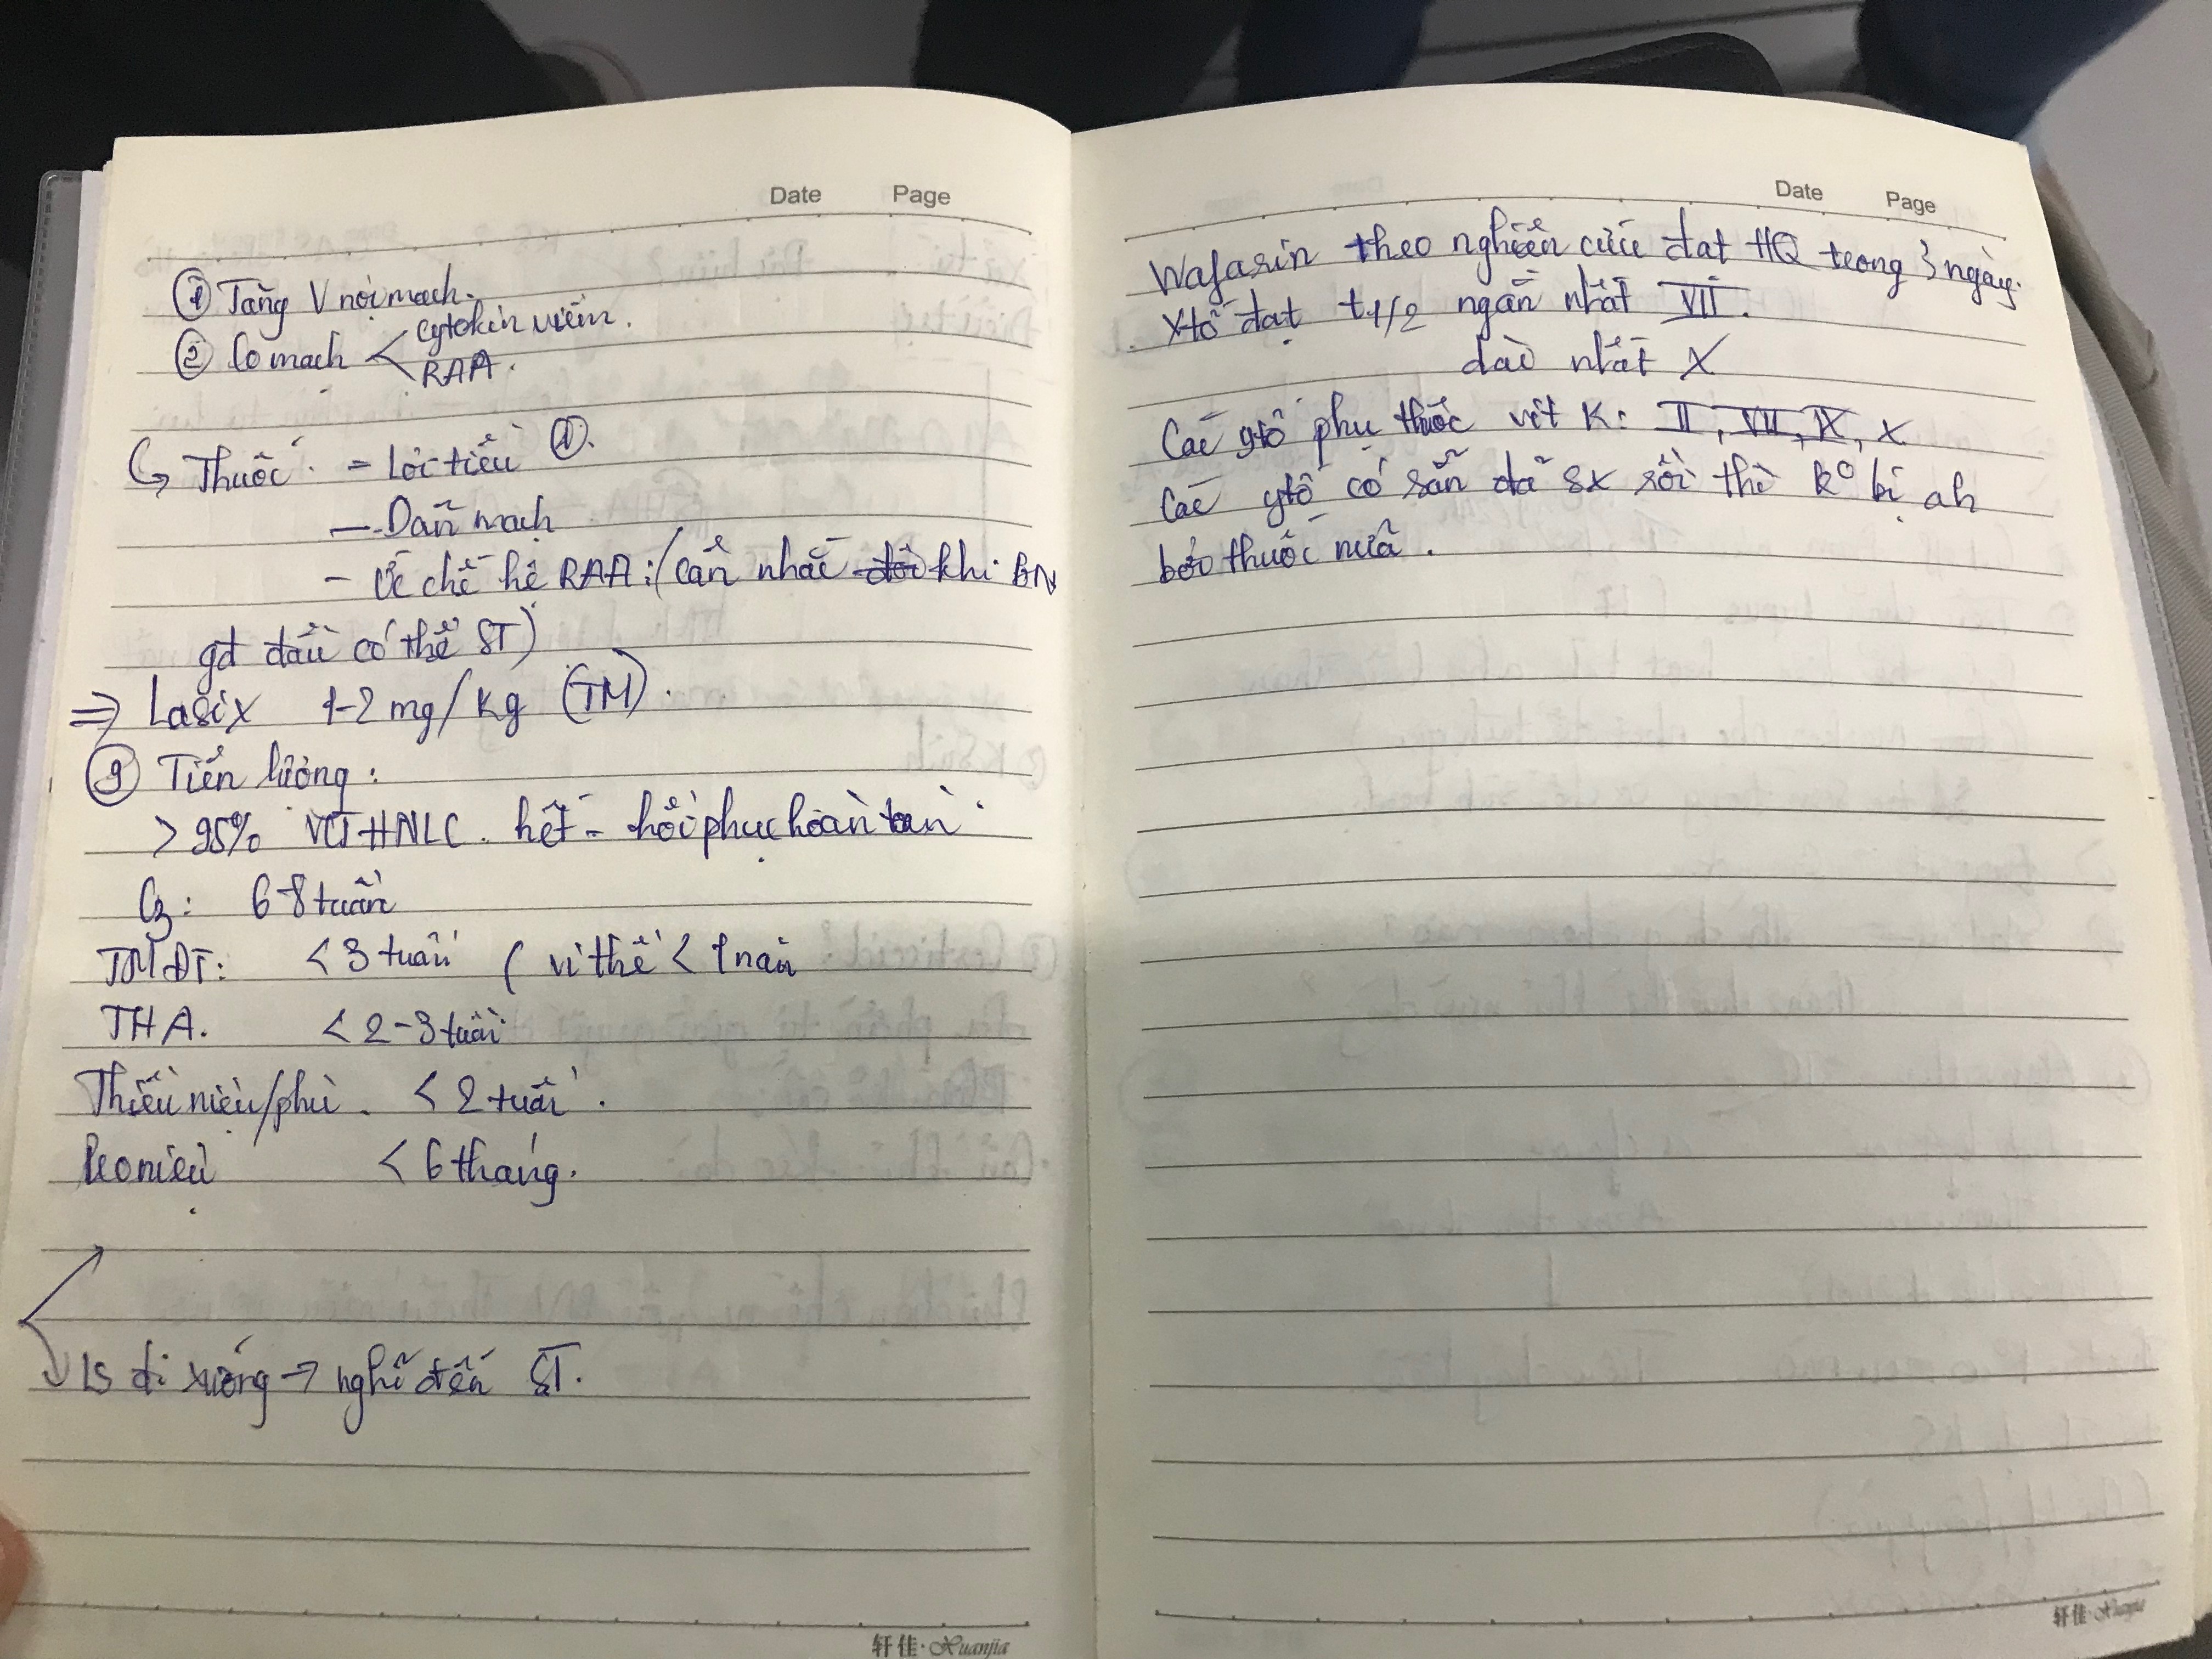 Date Page
① Tăng V nội mạch.
② Co mạch < cytokin viêm.
RAA.
↳ Thuốc: - Lợi tiểu ①.
- Dãn mạch
- Ức chế hệ RAA: (cân nhắc khi BN
gđ đầu có thể ST)
⇒ Lasix 1-2 mg/kg (TM).
⑨ Tiên lượng:
> 95% VCTHNLC hết - hồi phục hoàn toàn
C3: 6-8 tuần
TMĐT: < 3 tuần (vi thể < 1 năm
THA. < 2-3 tuần
Thiểu niệu/phù. < 2 tuần.
Pro niệu < 6 tháng.
ls đi xuống → nghĩ đến ST.
轩佳·Xuanjia
Date Page
Wafarin theo nghiên cứu đạt HQ trong 3 ngày.
Ytố đạt t1/2 ngắn nhất VII.
dài nhất X
Các ytố phụ thuộc vit K: II, VII, IX, X
Các ytố có sẵn đã sx rồi thì k° bị ah
bởi thuốc nữa.
轩佳·Xuanjia